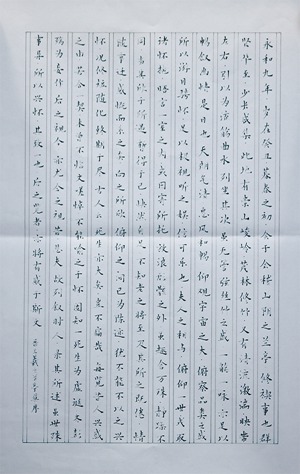 永和九年歲在癸丑暮春之初會于會稽山陰之蘭亭脩禊事也群
賢畢至少長咸集此地有崇山峻嶺茂林脩竹又有清流激湍映帶
左右引以為流觴曲水列坐其次雖無絲竹管弦之盛一觴一詠亦足以
暢敘幽情是日也天朗氣清惠風和暢仰觀宇宙之大俯察品類之盛
所以遊目騁懷足以極視聽之娛信可樂也夫人之相與俯仰一世或取
諸懷抱悟言一室之內或因寄所託放浪形骸之外雖趣舍萬殊靜躁不
同當其欣于所遇暫得于己快然自足不知老之將至及其所之既倦情
隨事遷感慨係之矣向之所欣俯仰之間已為陳迹猶不能不以之興
懷況脩短隨化終期于盡古人云死生亦大矣豈不痛哉每覽昔人興感
之由若合一契未嘗不臨文嗟悼不能喻之于懷固知死生為虛誕齊彭
殤為妄作後之視今亦由今之視昔悲夫故列敘時人錄其所述雖世殊
事異所以興懷其致一也後之覽者亦將有感于斯文